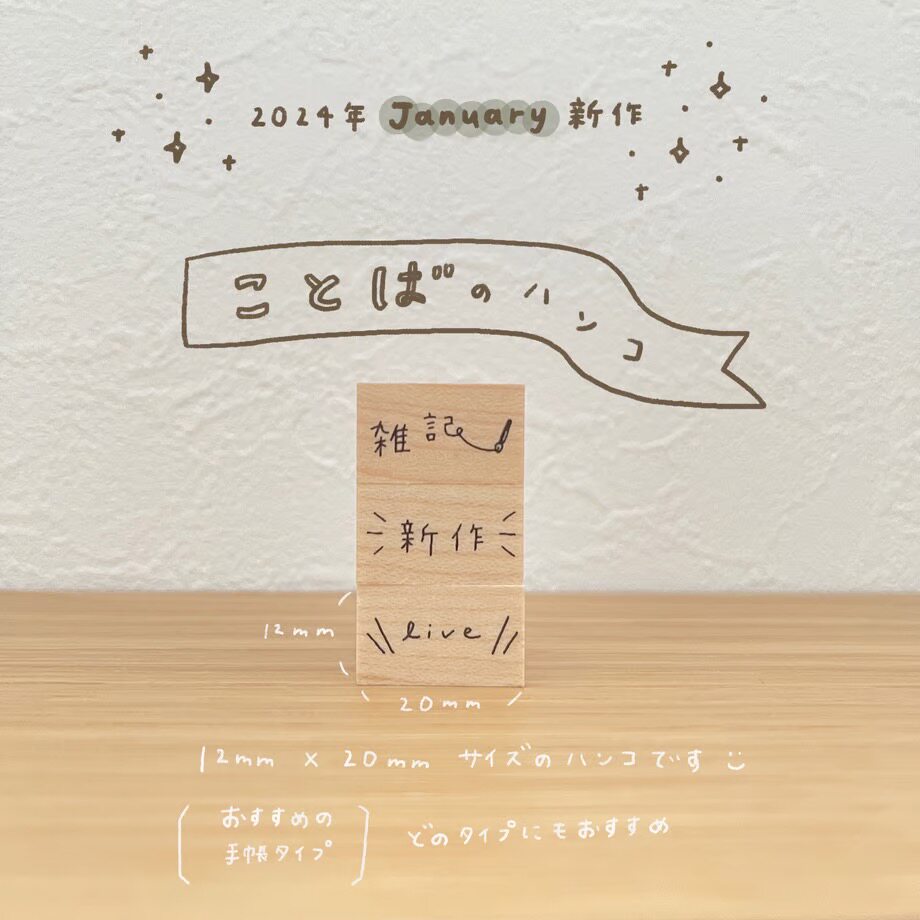 2024年 January 新作
ことばのハンコ
雑記
新作
live
12mm
20mm
12mm × 20mm サイズのハンコです
おすすめの
手帳タイプ
どのタイプにもおすすめ